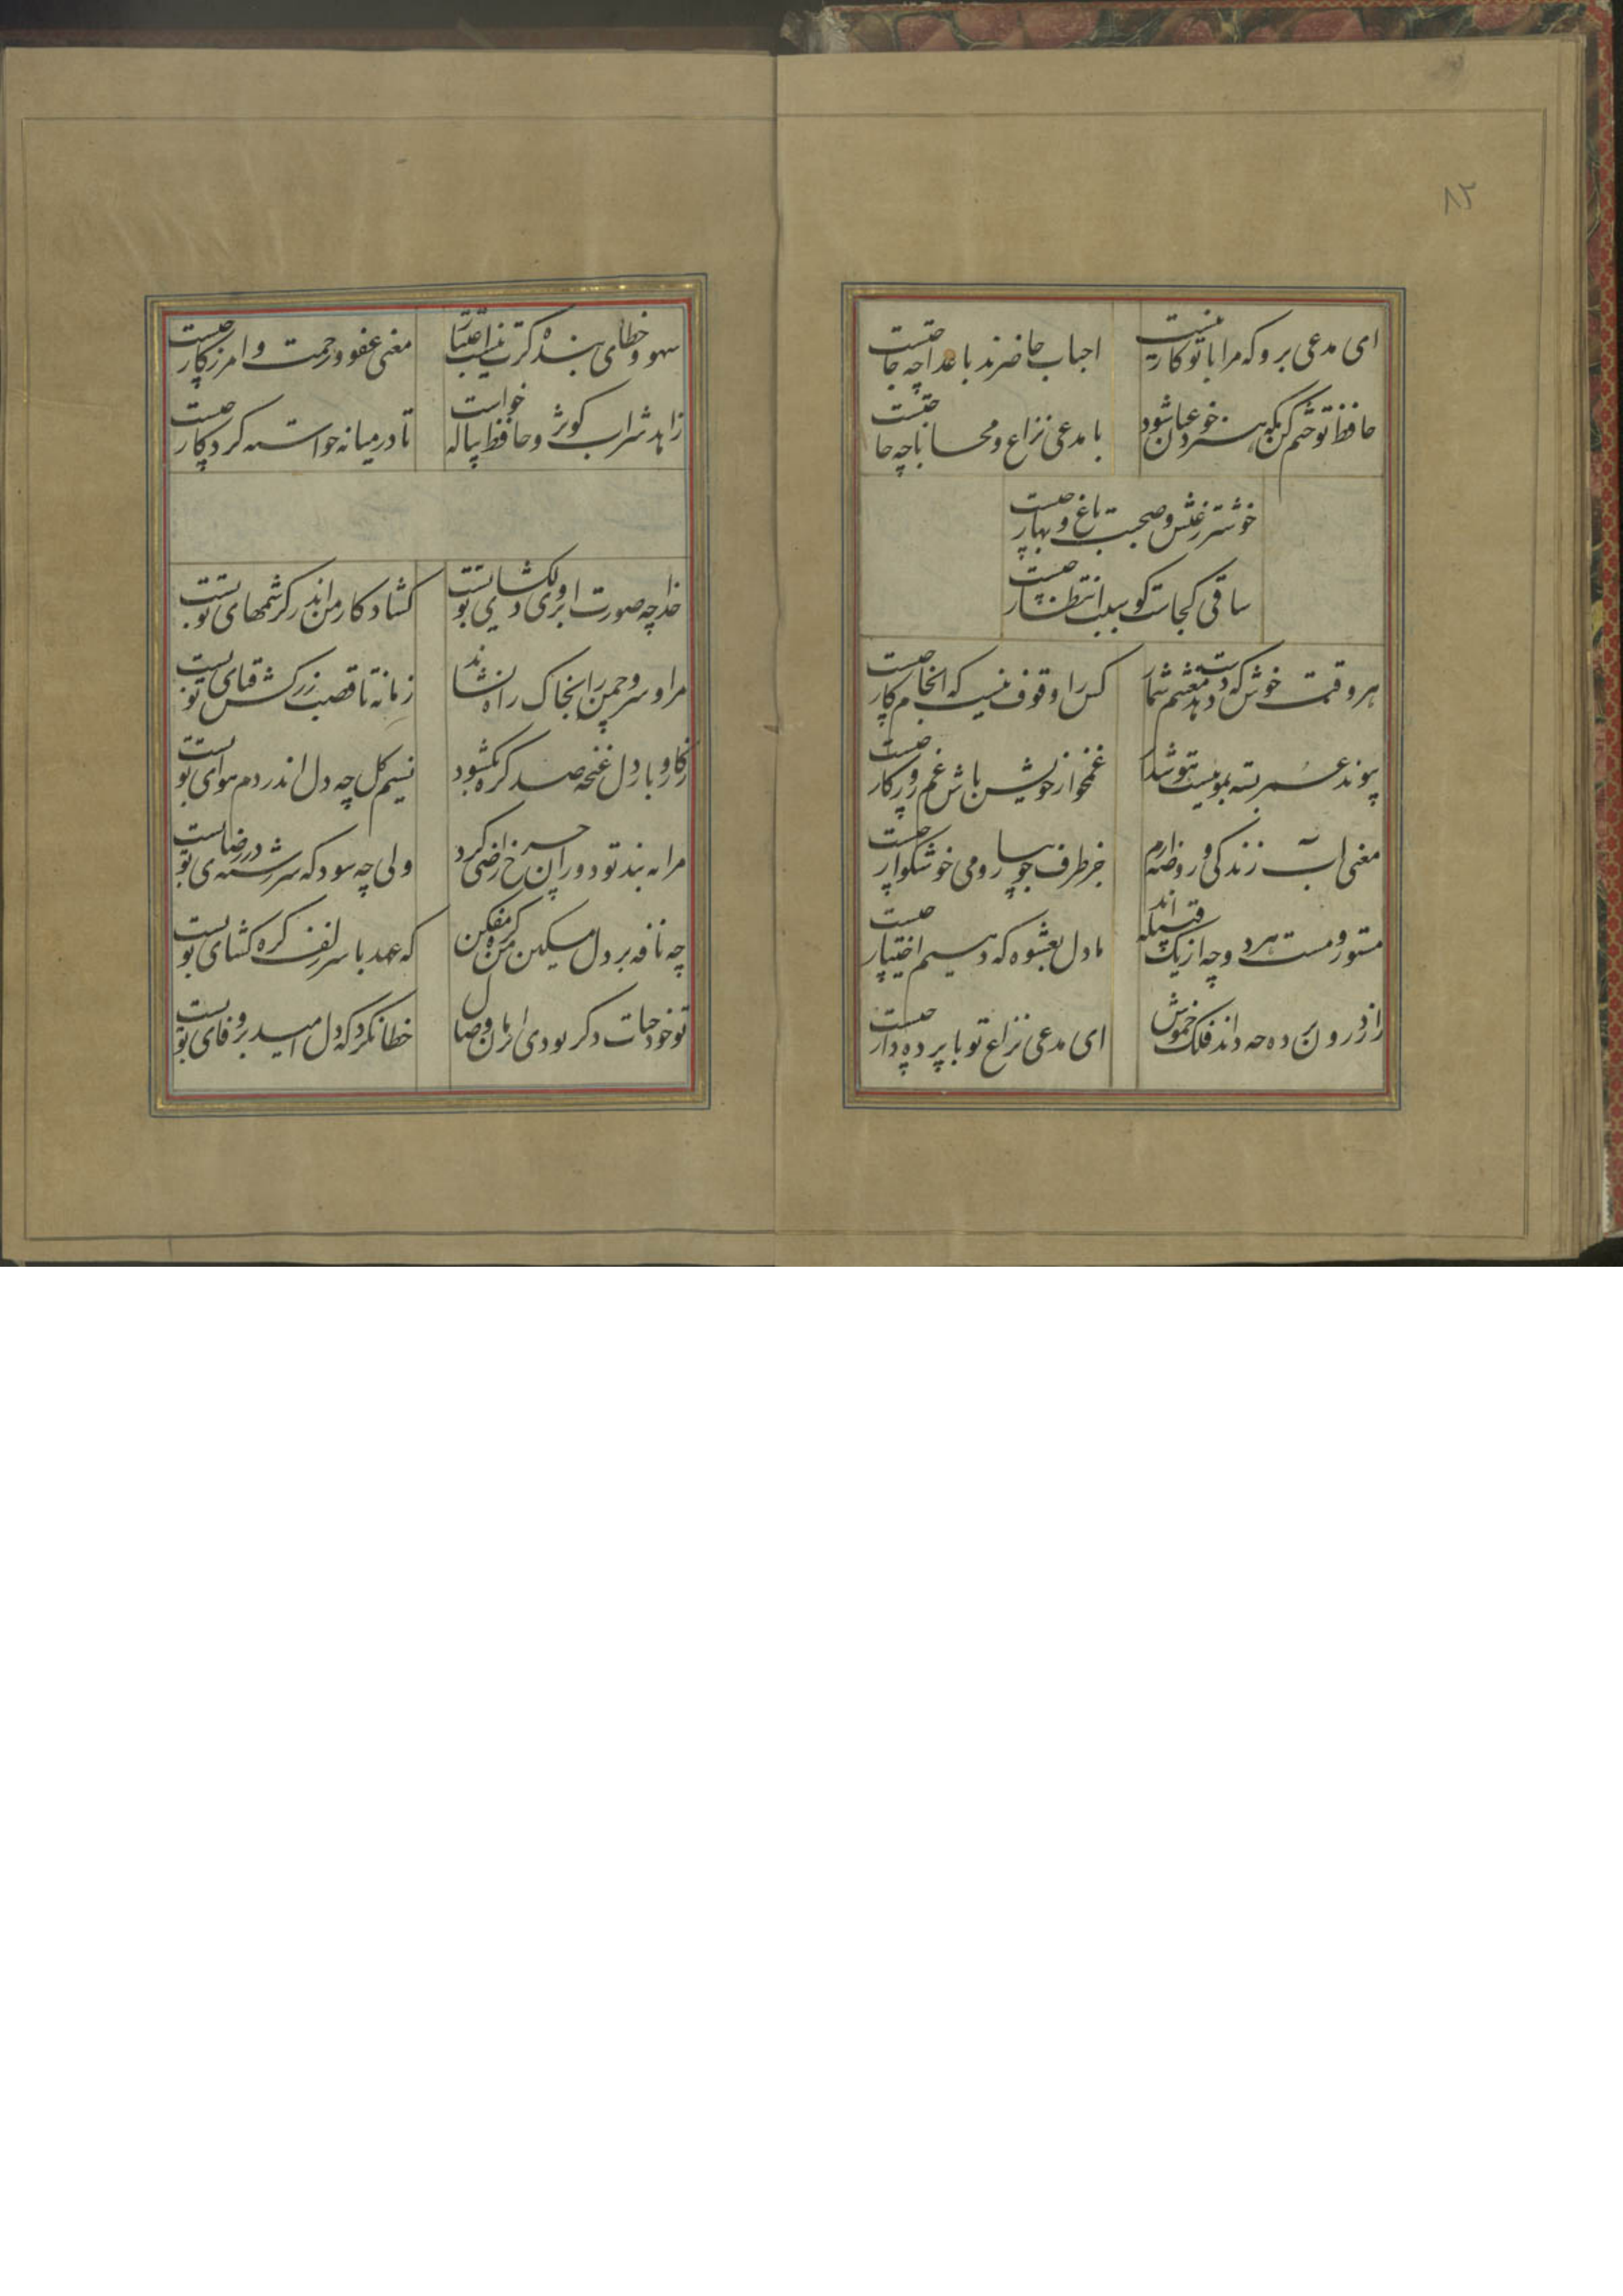 ۸۲
ای مدعی برو که مرا با تو کار نیست
احباب حاضرند باعدا چه حاجتست
حافظ تو ختم کن که هنر خود عیان شود
با مدعی نزاع و محابا چه حاجتست
خوشتر ز عیش و صحبت باغ و بهار چیست
ساقی کجاست کو سبب انتظار چیست
هر وقت خوش که دست دهد مغتنم شمار
کس را وقوف نیست که انجام کار چیست
پیوند عمر بسته بموییست هوش دار
غمخوار خویش باش غم روزکار چیست
معنی آب زندکی و روضه ارم
جز طرف جویبار و می خوشکوار چیست
مستور و مست هر دو چه از یک قبیله اند
ما دل بعشوه که دهیم اختیار چیست
راز درون پرده چه داند فلک خموش
ای مدعی نزاع تو با پرده دار چیست
سهو و خطای بنده کرت نیست اعتبار
معنی عفو و رحمت و امرزکار چیست
زاهد شراب کوثر و حافظ پیاله خواست
تا در میانه خواسته کردکار چیست
خدا چه صورت ابروی دلکشای تو بست
کشاد کار من اندر کرشمهای تو بست
مرا و سرو چمن را بخاک راه نشاند
زمانه تا قصب زرکش قبای تو بست
ز کار و بار دل غنچه صد کره بکشود
نسیم کل چه دل اندر دم هوای تو بست
مرا به بند تو دوران چرخ راضی کرد
ولی چه سود که سررشته در رضای تو بست
چه نافه بر دل مسکین من کره مفکن
که عهد با سر زلف کره کشای تو بست
تو خود حیات دکر بودی ای زمان وصال
خطا نکر که دل امید بر وفای تو بست